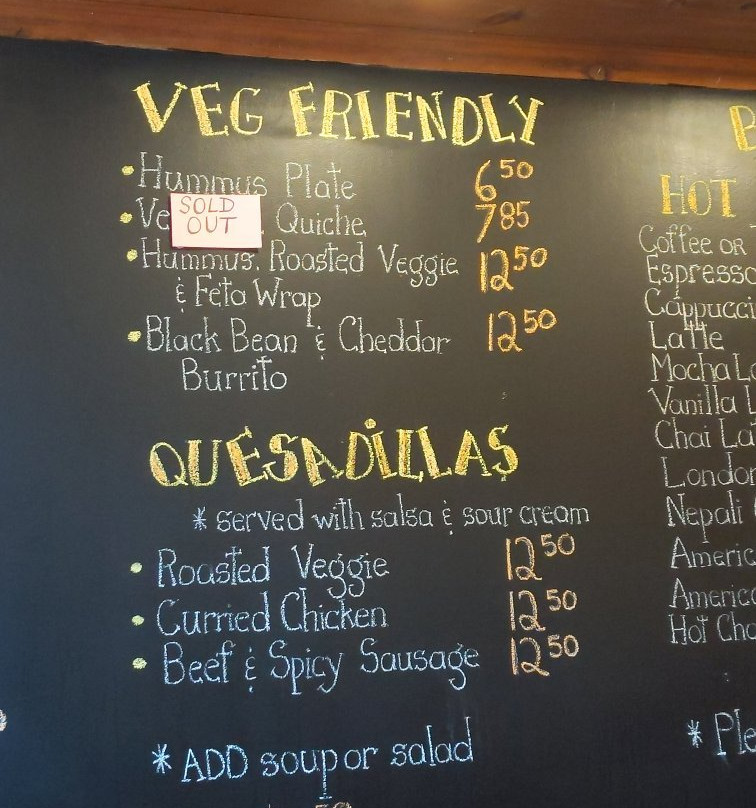 VEG FRIENDLY
• Hummus Plate 6 50
• SOLD OUT Quiche 7 85
• Hummus, Roasted Veggie 12 50
& Feta Wrap
• Black Bean & Cheddar 12 50
Burrito
QUESADILLAS
* served with salsa & sour cream
• Roasted Veggie 12 50
• Curried Chicken 12 50
• Beef & Spicy Sausage 12 50
* ADD soup or salad
HOT
Coffee or
Espresso
Latte
Mocha
Vanilla
Chai
Nepali
Hot